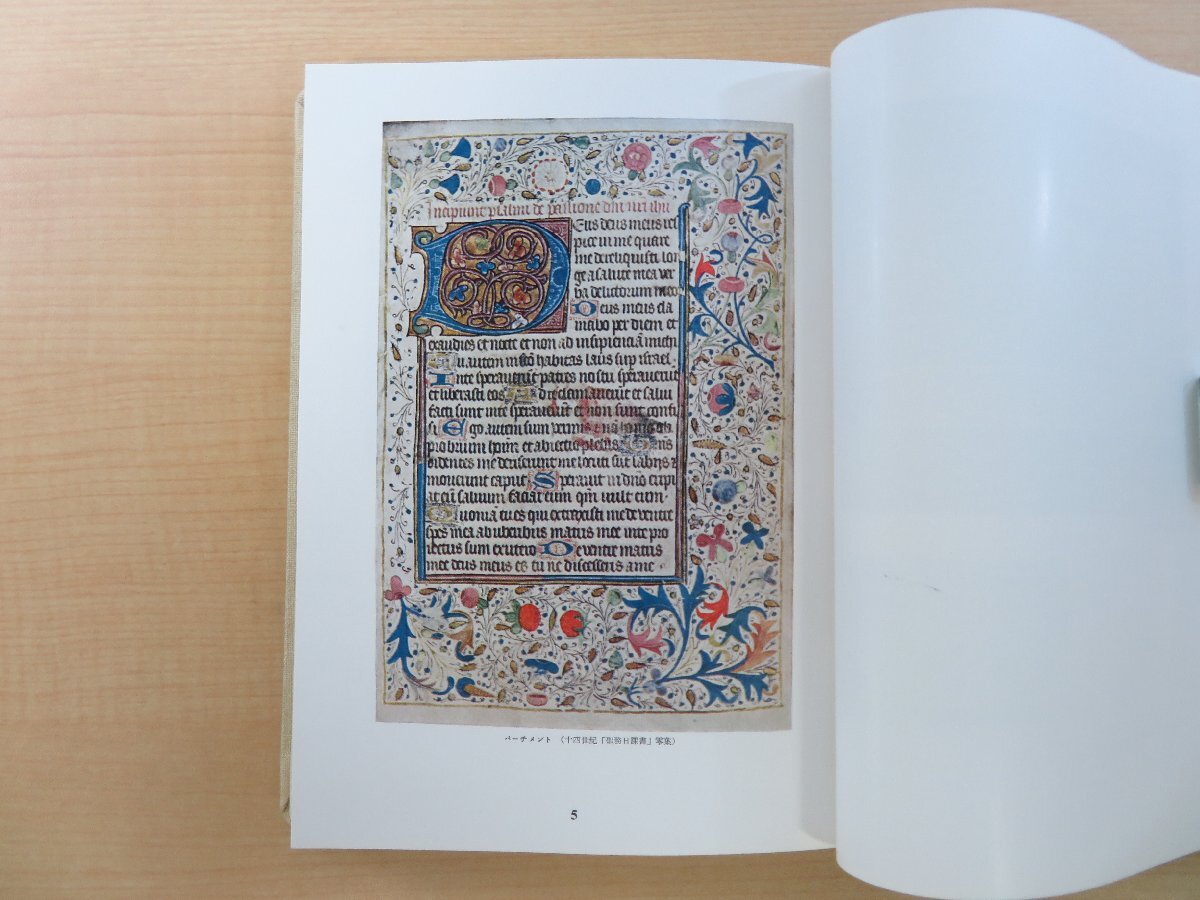 Incipiunt psalmi de passione dni nri ihu
Deus deus meus res
pice in me quare
me dereliquisti lon
ge a salute mea ver
ba delictorum meo
Deus meus cla
mabo per diem et
exaudies et nocte et non ad insipienciā michi
Tu autem in scō habitas laus isrp israel
In te speraverūt patres nostri speraverūt
et liberasti eos Ad te clamaverūt et salvi
facti sunt in te speraverūt et non sunt confu
si Ego autem sum vermis et nō homo
probrium homīn et abiectio plebis Omns
videntes me deriserunt me locuti sūt labiis et
moverunt caput Speravit in dnō eripi
at eū salvum faciat eum qm̄ vult eum
Quoniā tu es qui extraxisti me de ventre
spes mea ab uberibus matris mee in te pro
iectus sum ex utero De ventre matris
mee deus meus es tu ne discesseris a me
パーチメント (十四世紀「聖務日課書」零葉)
5